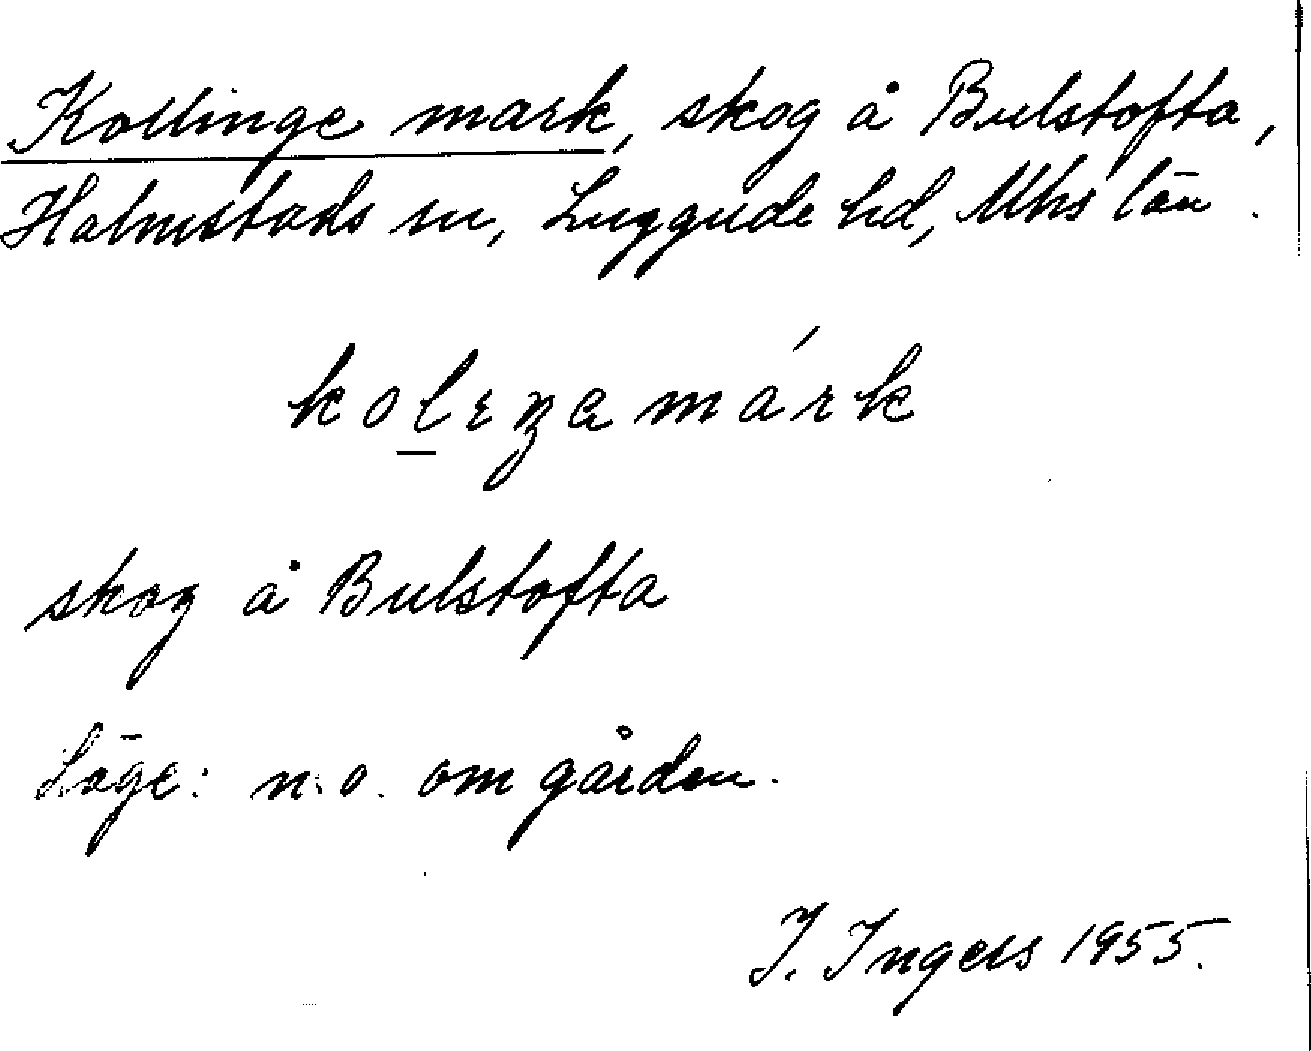 Kollinge mark, skog å Bulstofta,
Halmstads sn, Luggude hd, Mhs län.
skog å Bulstofta
Läge: n.o. om gården.
I. Ingers 1955.